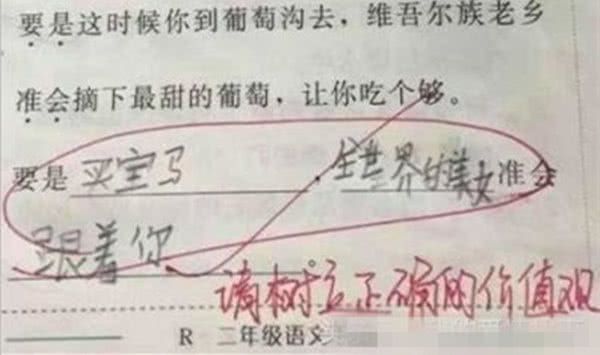 要是这时候你到葡萄沟去，维吾尔族老乡
准会摘下最甜的葡萄，让你吃个够。
要是买宝马，全世界的美女准会
跟着你
请树立正确的价值观
R 二年级语文